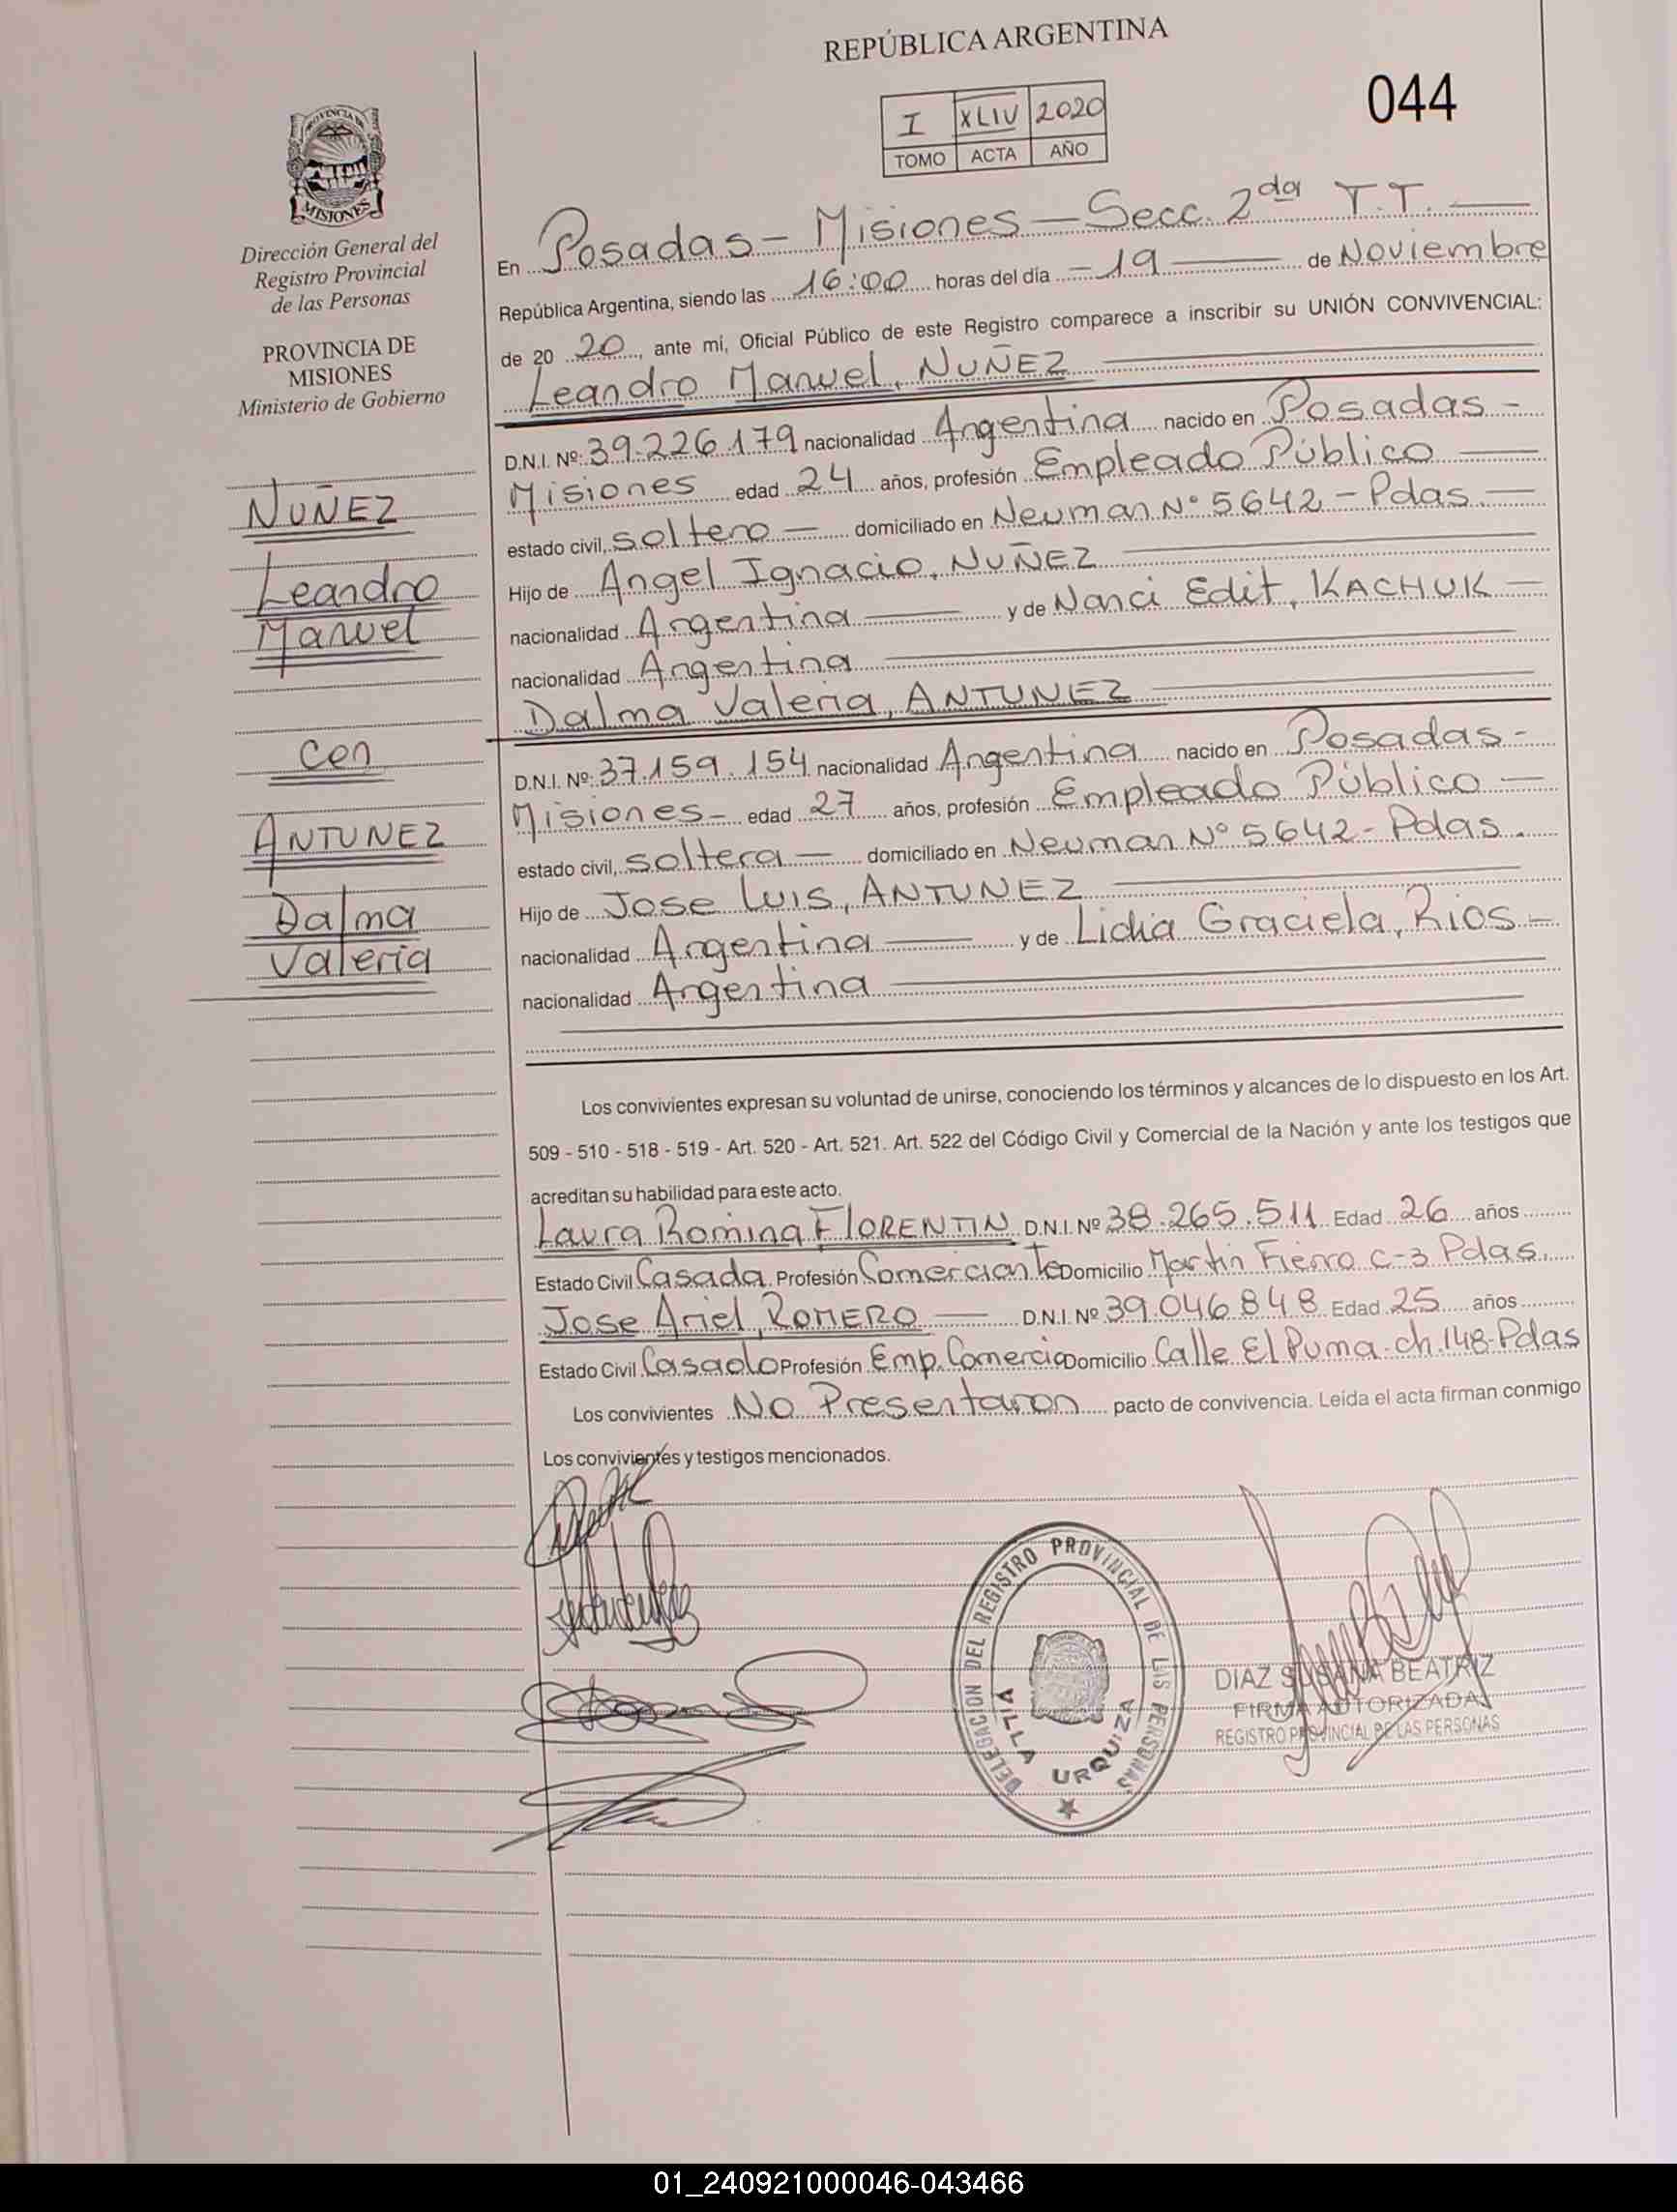 REPÚBLICA ARGENTINA
044
I XLIV 2020
TOMO ACTA AÑO
PROVINCIA DE
MISIONES
Dirección General del
Registro Provincial
de las Personas
PROVINCIA DE
MISIONES
Ministerio de Gobierno
NUÑEZ
Leandro
Manuel
Con
ANTUNEZ
Dalma
Valeria
En Posadas - Misiones - Secc. 2da T.T.
República Argentina, siendo las 16:00 horas del día - 19 de Noviembre
de 20 20, ante mí, Oficial Público de este Registro comparece a inscribir su UNIÓN CONVIVENCIAL:
Leandro Manuel, NUÑEZ
D.N.I. Nº: 39.226.179 nacionalidad Argentina nacido en Posadas -
Misiones edad 24 años, profesión Empleado Público
estado civil, soltero - domiciliado en Neuman Nº 5642 - Pdas.
Hijo de Angel Ignacio, NUÑEZ
nacionalidad Argentina y de Nanci Edit, KACHUK
nacionalidad Argentina
Dalma Valeria, ANTUNEZ
D.N.I. Nº: 37.159.154 nacionalidad Argentina nacido en Posadas -
Misiones - edad 27 años, profesión Empleado Público
estado civil, soltera - domiciliado en Neuman Nº 5642 - Pdas.
Hijo de Jose Luis, ANTUNEZ
nacionalidad Argentina y de Lidia Graciela, Rios -
nacionalidad Argentina
Los convivientes expresan su voluntad de unirse, conociendo los términos y alcances de lo dispuesto en los Art.
509 - 510 - 518 - 519 - Art. 520 - Art. 521. Art. 522 del Código Civil y Comercial de la Nación y ante los testigos que
acreditan su habilidad para este acto.
Laura Romina FLORENTIN D.N.I. Nº 38.265.511 Edad 26 años
Estado Civil Casada Profesión Comerciante Domicilio Martin Fierro C-3 Pdas.
Jose Ariel, ROMERO D.N.I. Nº 39.046.848 Edad 25 años
Estado Civil Casado Profesión Emp. Comercio Domicilio Calle El Puma - ch. 148 - Pdas
Los convivientes No Presentaron pacto de convivencia. Leída el acta firman conmigo
Los convivientes y testigos mencionados.
DELEGACION DEL REGISTRO PROVINCIAL DE LAS PERSONAS
VILLA URQUIZA
DIAZ SUSANA BEATRIZ
FIRMA AUTORIZADA
REGISTRO PROVINCIAL DE LAS PERSONAS
01_240921000046-043466